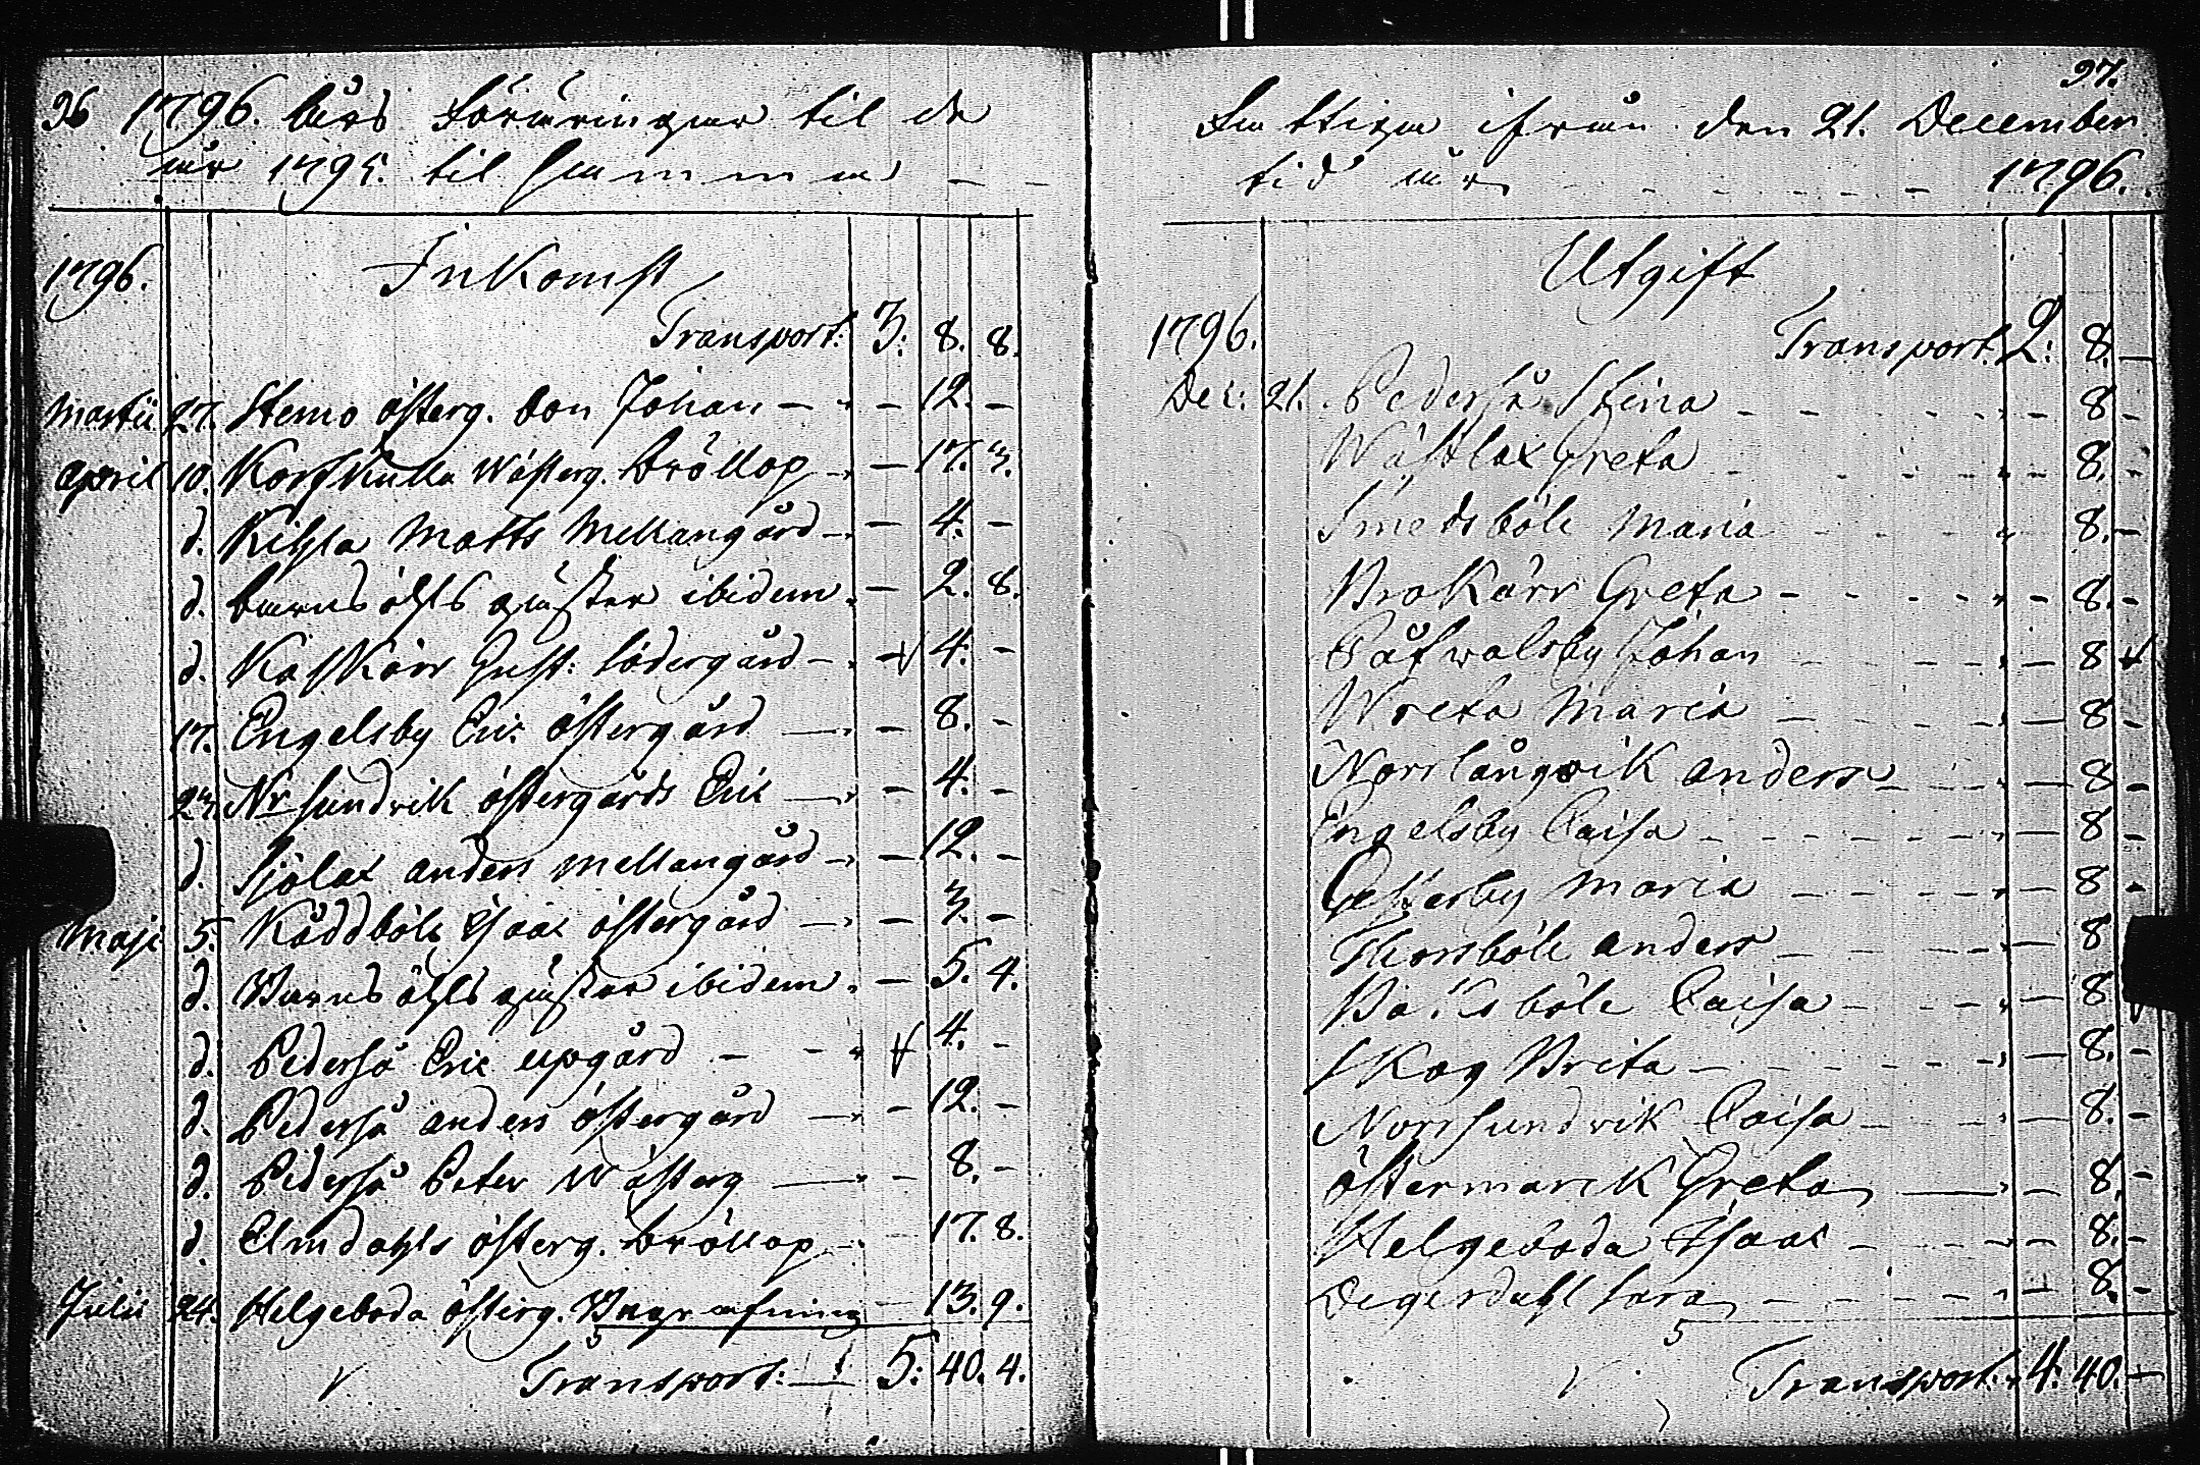 96 1796. års Föräringar til de
år 1795. til samma
1796. Inkomst
Transport: 3: 8. 8.
Martii 27. Stemo österg. bon Johan - - 12. -
April 10. Korsskulla Wästerg. bröllop - - 17. 3.
d. Kihla Matts Mellangård - - 4. -
d. barnsöhls gäster ibidem - 2. 8.
d. Kaskärr Gust: södergård - - 4. -
17. Engelsby Eric östergård - - 8. -
23. Nr sundvik östergårds Eric - - 4. -
d. Sjölax anders mellangård - - 12. -
Maji 5. Käddböle Isaac östergård - - 3. -
d. Barnsöhls gäster ibidem - 5. 4.
d. Pederså Eric upgård - - 4. -
d. Pederså anders östergård - - 12. -
d. Pederså Peter Wästerg - - 8. -
d. Elmdahls österg. bröllop - - 17. 8.
Julii 24. Helgeboda österg. - 13. 9.
5
Transport: 5: 40. 4.
97.
Fattiga ifrån den 21. December
tid år - - - - - - 1796.
Utgift
1796. Transport. 2: 8. -
Dec: 21. Pederså Stina - - - - 8 -
Wästlax Greta - - - - 8. -
Smedsböle Maria - - - - 8. -
Brokärr Greta - - - - 8. -
Påfwalsby Johan - - - - 8
Wreta Maria - - - - 8 -
Norrlångwik anders - - - - 8 -
Engelsby Caisa - - - - 8 -
Gesterby Maria - - - - 8 -
Thorsböle anders - - - - 8
Caisa - - - - 8
Skog Brita - - - - 8. -
Norrsundvik Caisa - - - - 8. -
östermarck Greta - - 8. -
Helgeboda Isaac - - - - 8. -
Degerdahl Sara - - - - 8. -
5
Transport. 4. 40. -